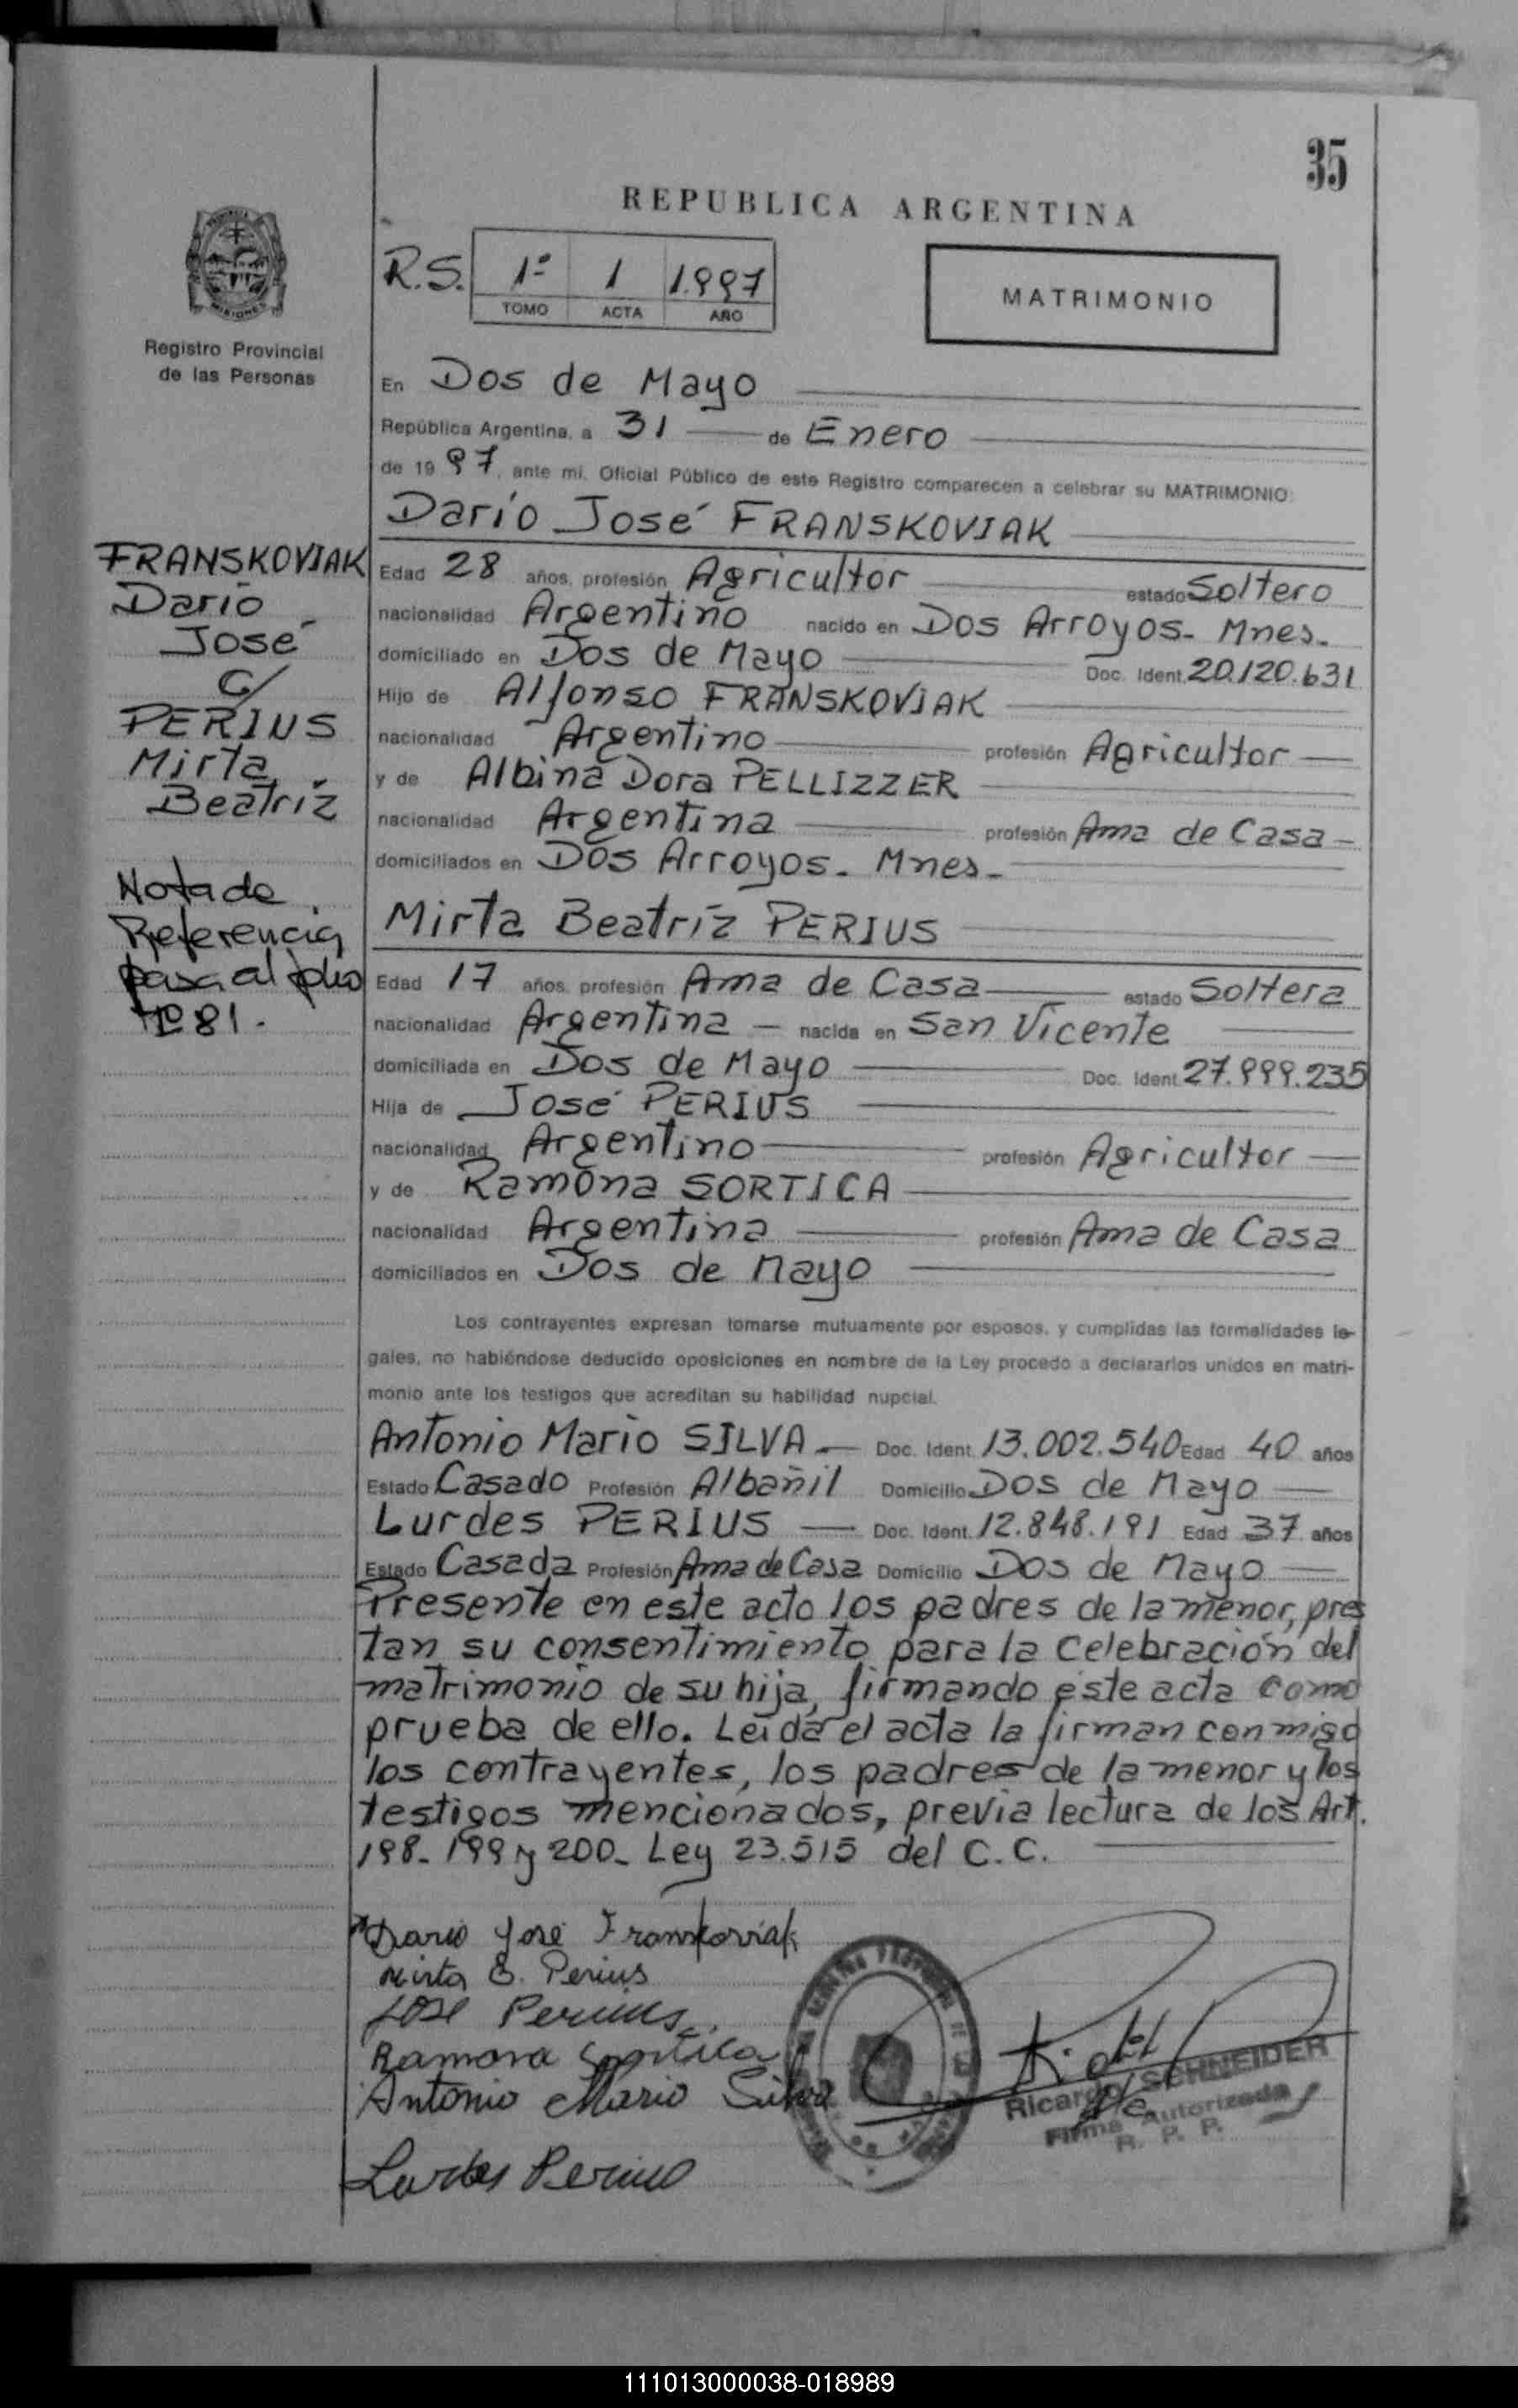 35
REPUBLICA ARGENTINA
R.S. 1º 1 1.997
TOMO ACTA AÑO
MATRIMONIO
MISIONES
Registro Provincial
de las Personas
En Dos de Mayo
República Argentina, a 31 de Enero
de 19 97, ante mi, Oficial Público de este Registro comparecen a celebrar su MATRIMONIO:
Darío José FRANSKOVIAK
FRANSKOVIAK
Darío
José
c/
PERIUS
Mirta
Beatríz
Nota de
Referencia
pasa al folio
Nº 81.-
Edad 28 años, profesión Agricultor estado Soltero
nacionalidad Argentino nacido en Dos Arroyos- Mnes.
domiciliado en Dos de Mayo Doc. Ident. 20.120.631
Hijo de Alfonso FRANSKOVIAK
nacionalidad Argentino profesión Agricultor
y de Albina Dora PELLIZZER
nacionalidad Argentina profesión Ama de Casa
domiciliados en Dos Arroyos- Mnes-
Mirta Beatríz PERIUS
Edad 17 años, profesión Ama de Casa estado Soltera
nacionalidad Argentina nacida en San Vicente
domiciliada en Dos de Mayo Doc. Ident. 27.999.235
Hija de José PERIUS
nacionalidad Argentino profesión Agricultor
y de Ramona SORTICA
nacionalidad Argentina profesión Ama de Casa
domiciliados en Dos de Mayo
Los contrayentes expresan tomarse mutuamente por esposos, y cumplidas las formalidades le-
gales, no habiéndose deducido oposiciones en nombre de la Ley procedo a declararlos unidos en matri-
monio ante los testigos que acreditan su habilidad nupcial.
Antonio Mario SILVA Doc. Ident. 13.002.540 Edad 40 años
Estado Casado Profesión Albañil Domicilio Dos de Mayo
Lurdes PERIUS Doc. Ident. 12.848.191 Edad 37 años
Estado Casada Profesión Ama de Casa Domicilio Dos de Mayo
Presente en este acto los padres de la menor, pres
tan su consentimiento para la celebración del
matrimonio de su hija, firmando éste acta como
prueba de ello. Leída el acta la firman conmigo
los contrayentes, los padres de la menor y los
testigos mencionados, previa lectura de los Art.
198- 199 y 200- Ley 23.515 del C.C.
Dario José Franskoviak
Mirta B. Perius
José Perius
Ramona Sortica
Antonio Mario Silva
Lurdes Perius
Ricardo SCHNEIDER
Firma Autorizada
R. P. P.
111013000038-018989